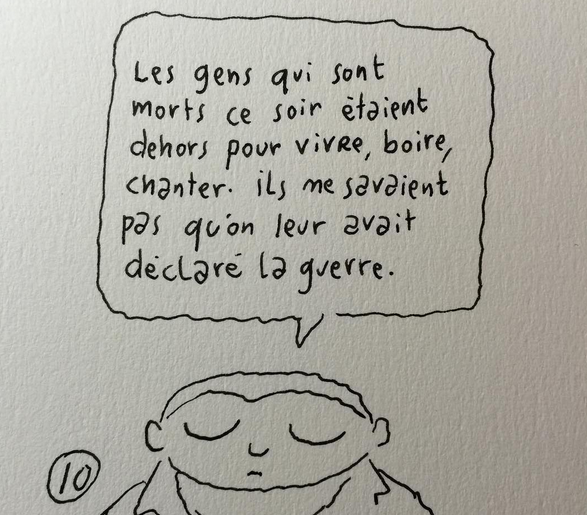 Les gens qui sont
morts ce soir étaient
dehors pour vivre, boire,
chanter. ils ne savaient
pas qu'on leur avait
déclaré la guerre.
10